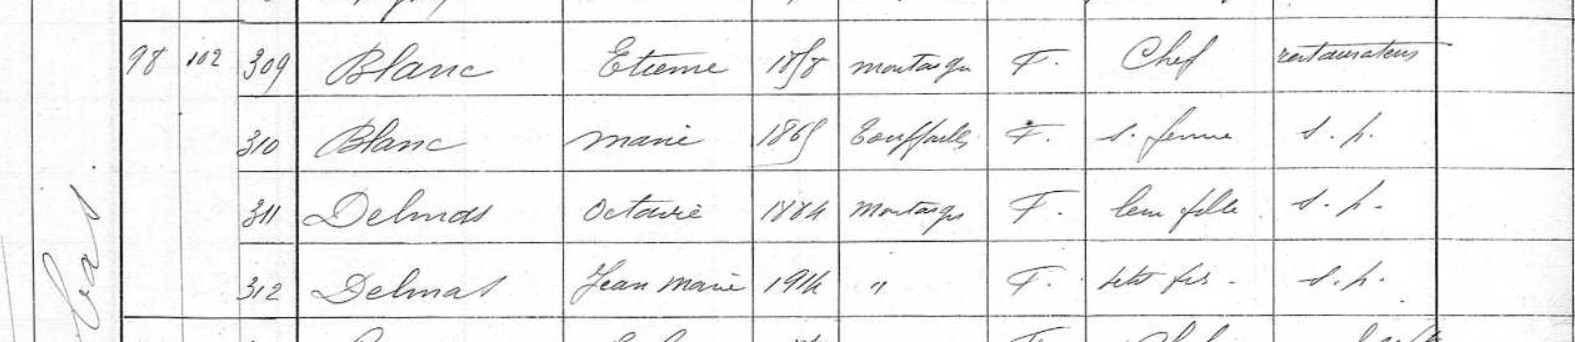 98 102 309 Blanc Etienne 1858 Montaigu F. Chef restaurateur
310 Blanc Marie 1865 F. s. femme s. p.
311 Delmas Octavie 1884 Montaigu F. leur fille s. p.
312 Delmas Jean Marie 1914 " F. petit fils s. p.
bas